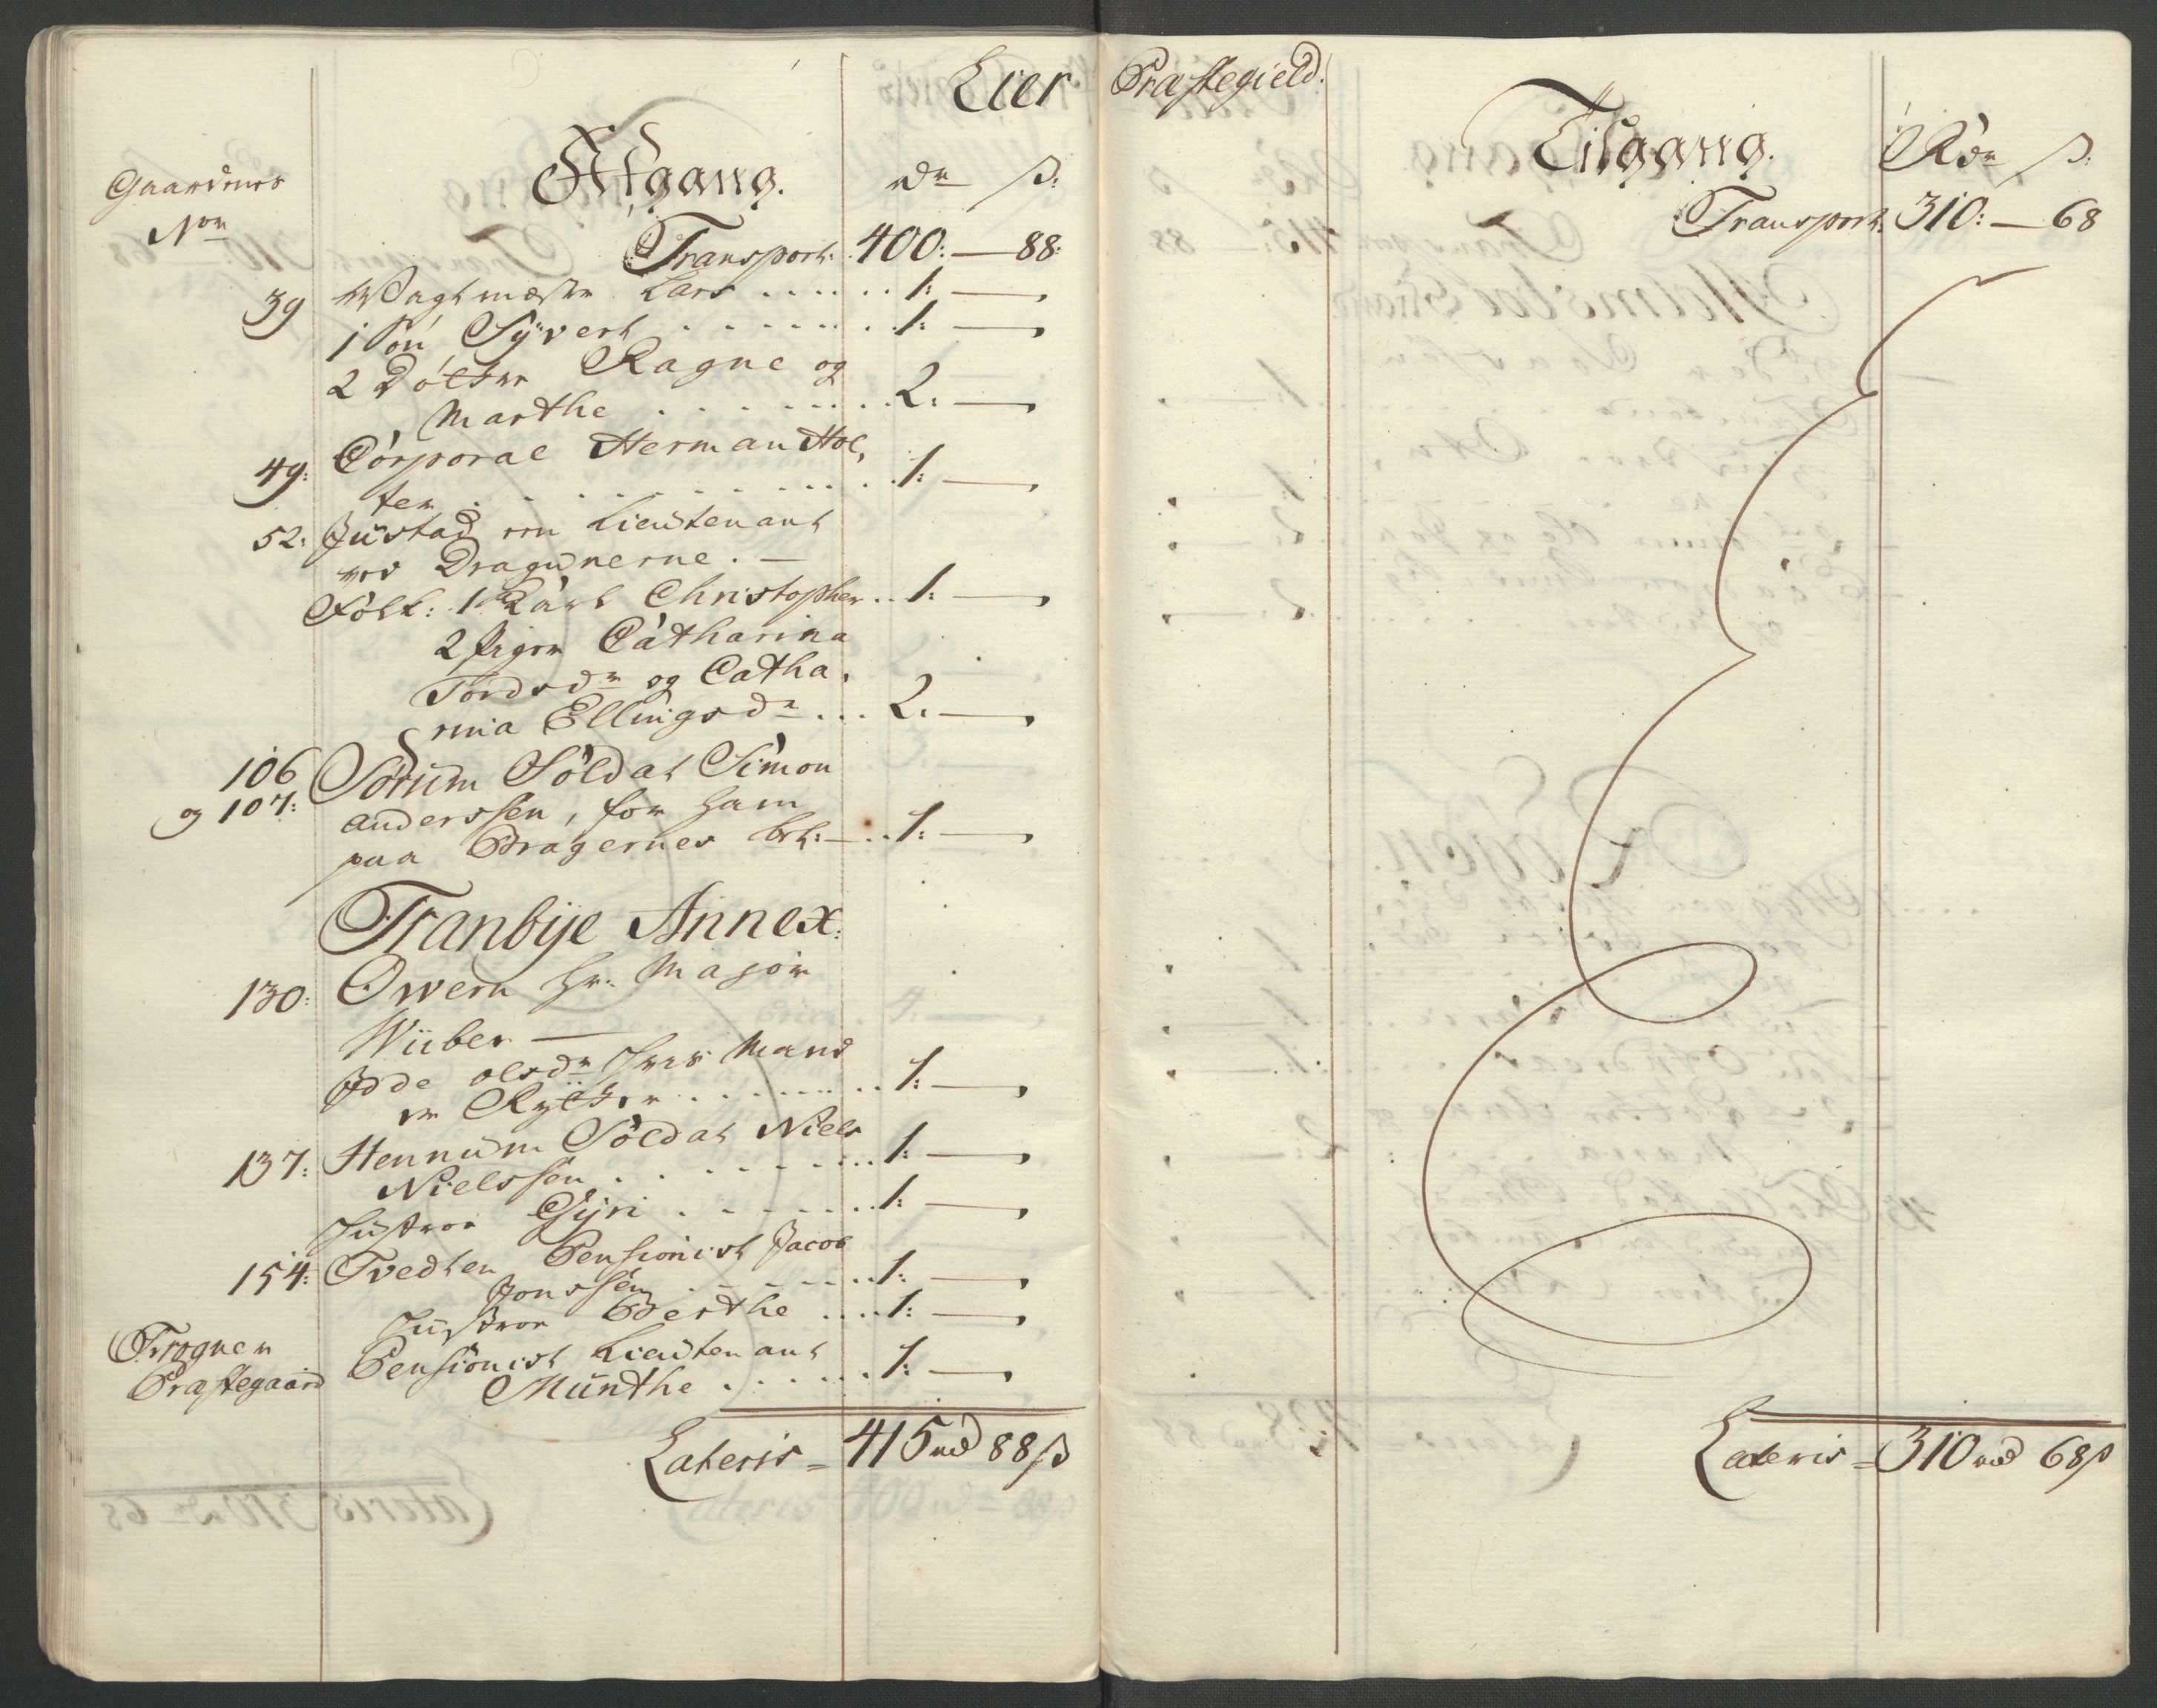 Lier Præstegield.
Gaardenes
Nor
Afgang.
rdr ß:
Transport. 400: — 88:
39 Wagtmæster Lars ...... 1: —
1 Søn Syvert ...... 1: —
2 Døttre Ragne og
Marthe ...... 2: —
49: Corporal Herman Hol,
ter ...... 1: —
52: Justad en Lieutenant
ved Dragunerne. —
Folk: 1 Karl Christopher .. 1: —
2 Piger Catharina
Tordsdr og Catha,
rina Ellingsdr ... 2. —
106 Sørum Soldat Simon
og 107: Anderssen, for ham
paa Bragernes bet: — .. 1: —
Tranbye Annex.
130: Owern Hr. Major
Wiiber —
Adde Olsdr hvis Mand
er Rytter ...... 1: —
137: Hennum Soldat Niels
Nielssen ...... 1: —
Hustroe Gyri ...... 1: —
154: Tvedten Pensionist Jacob
Jonssen ...... 1: —
Hustroe Berthe .... 1: —
Frogner Pensionist Lieutenant
Præstegaard Munthe ...... 1: —
Lateris = 415 rd 88 ß
Tilgang.
Rdr ß:
Transport. 310: — 68
Lateris = 310 rd 68 ß